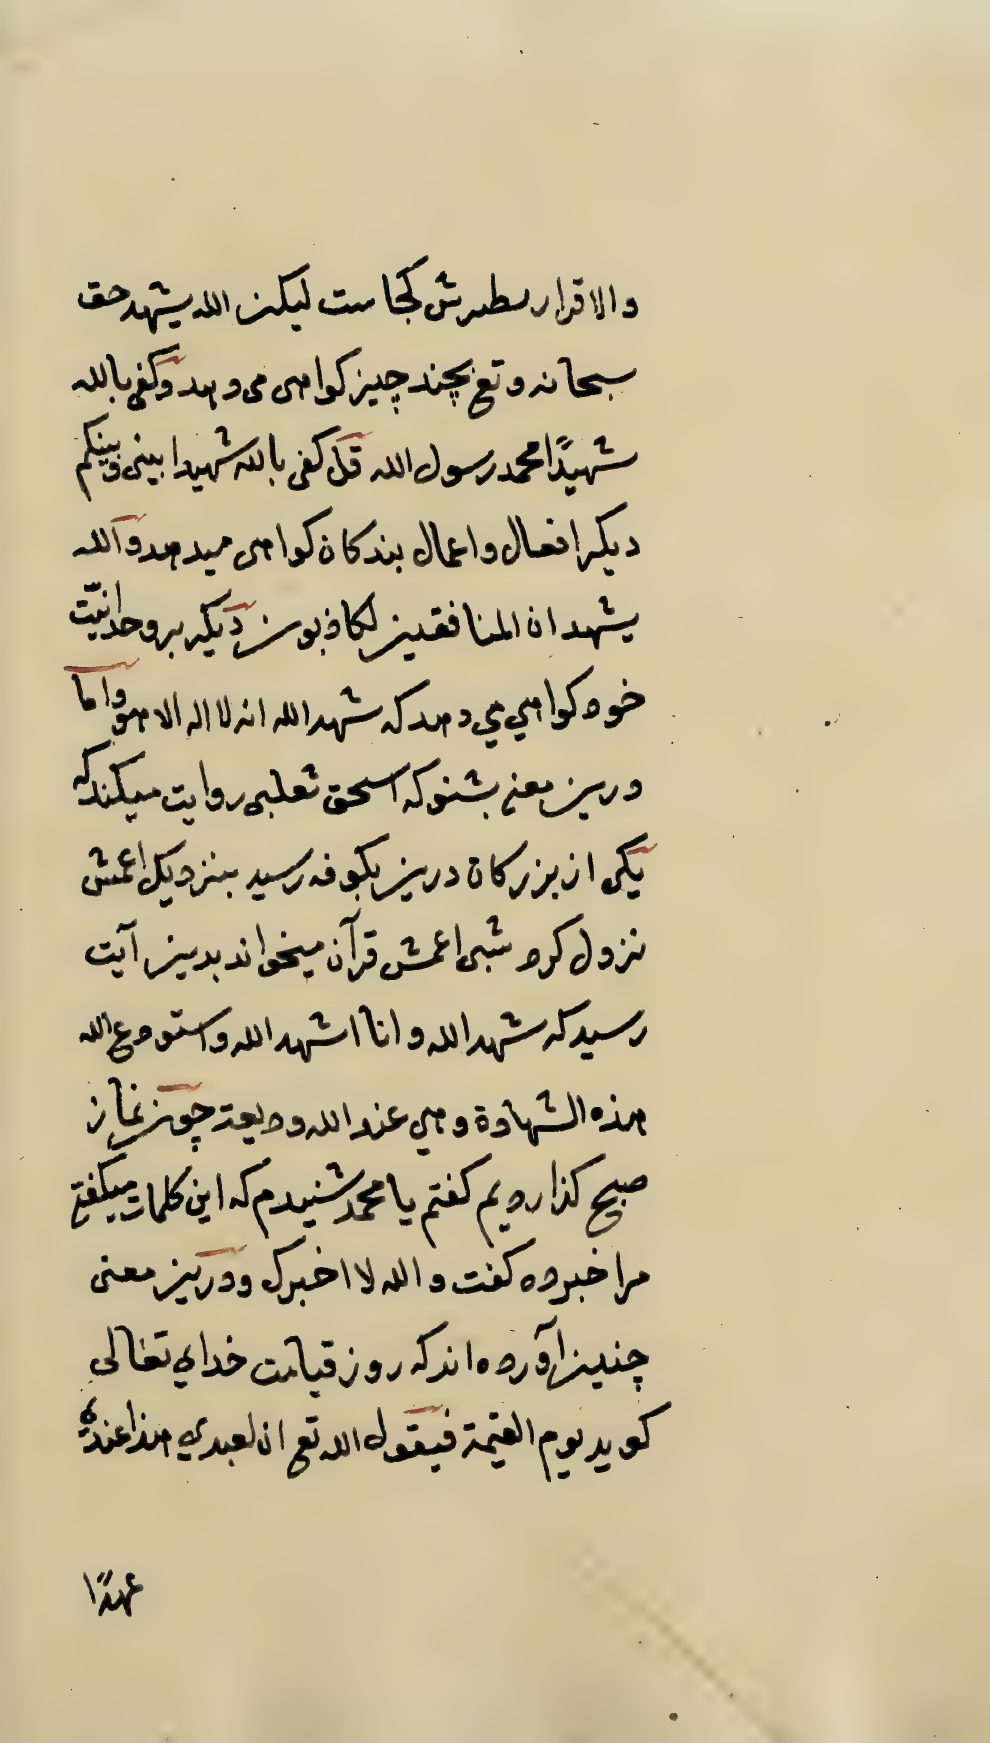 والاقرار سطبرش کجا ست لیکن الله یشهد حق
سبحانه و تع بچند چیز کواهی می دهد وکفی بالله
شهیدًا محمد رسول الله قل کفی بالله شهیدا بینی وبینکم
دیکر افعال و اعمال بندکان کواهی میدهد والله
یشهد ان المنافقین لکاذبون دیکر بر وحدانیّت
خود کواهی می دهد که شهد الله انه لا اله الا هو واما
درین معنی بشنو که اسحق ثعلبی روایت میکند که
یکی از بزرکان درین بکوفه رسید بنزدیک اعمش
نزول کرد شبی اعمش قرآن میخواند بدین آیت
رسید که شهد الله و انا اشهد الله واستودع الله
هذه الشهادة وهی عند الله ودیعة چون نماز
صبح کذاردیم کفتم یا محمد شنیدم که این کلمات میکفتی
مرا خبر ده کفت والله لا اخبرک ودرین معنی
چنین آورده اند که روز قیامت خدای تعالی
کوید یوم القیمة فیقول الله تع ان لعبدی هذا عندی
عهدًا